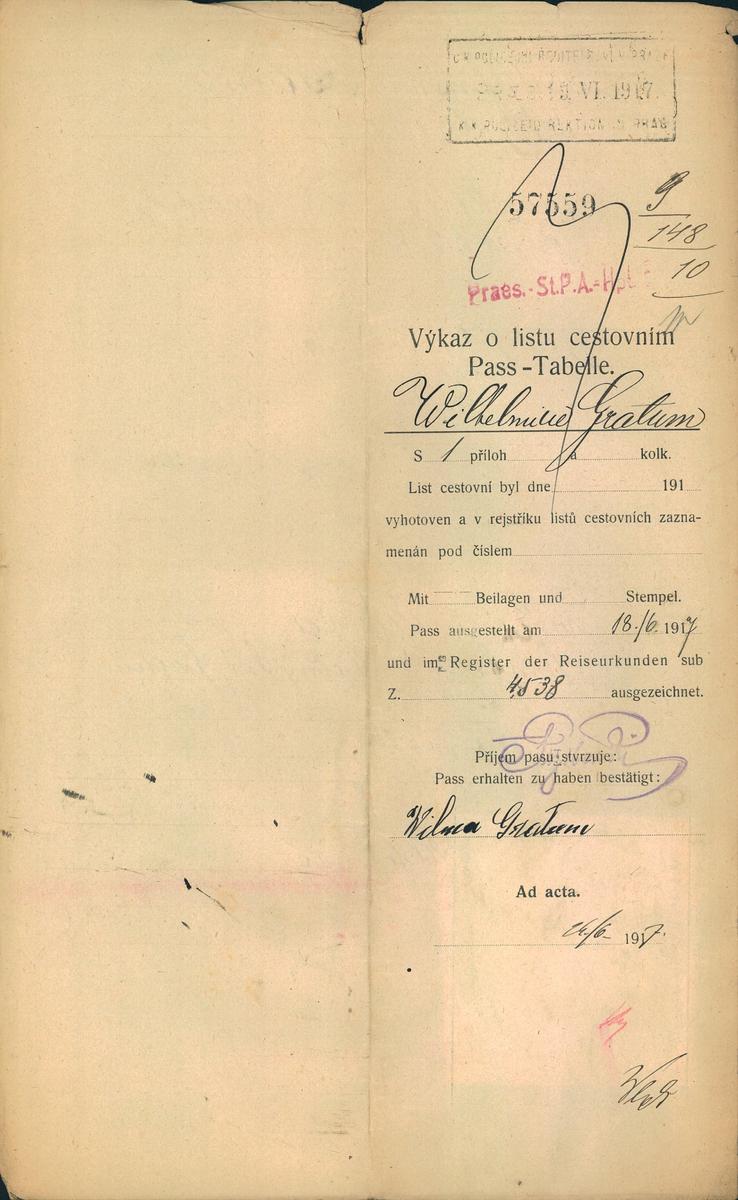 C. K. POLICEJNÍ ŘEDITELSTVÍ V PRAZE
VI. 1917
K. K. POLIZEIDIREKTION IN PRAG
57559
9
148
10
Praes.-St.P.A.-
Výkaz o listu cestovním
Pass-Tabelle.
Gratum
S 1 příloh a kolk.
List cestovní byl dne 191
vyhotoven a v rejstříku listů cestovních zazna-
menán pod číslem
Mit Beilagen und Stempel.
Pass ausgestellt am 18./6. 1917
und im Register der Reiseurkunden sub
Z. 4538 ausgezeichnet.
Příjem pasu stvrzuje:
Pass erhalten zu haben bestätigt:
Wilma Gratum
Ad acta.
1917.